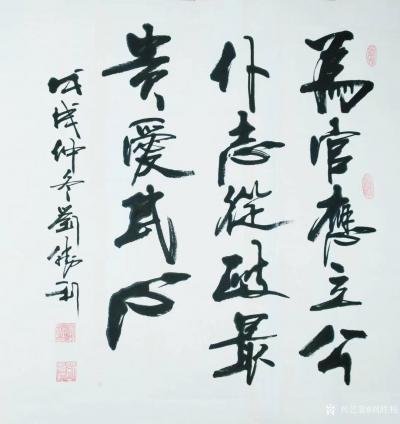 為官應立公
仆志從政最
貴愛民心
戊戌仲冬劉勝利